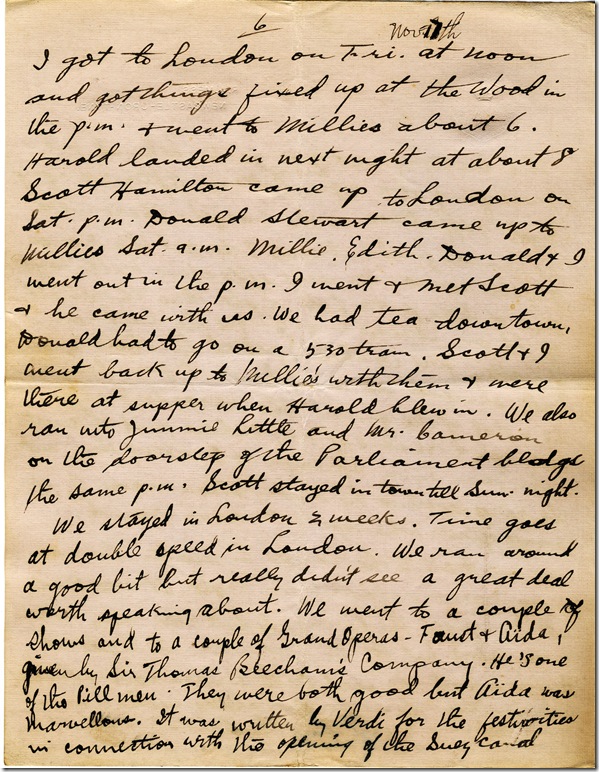 6
Nov 17th
I got to London on Fri. at noon
and got things fixed up at the Wood in
the p.m. & went to Millies about 6.
Harold landed in next night at about 8
Scott Hamilton came up to London on
Sat. p.m. Donald Stewart came up to
Millies Sat. a.m. Millie, Edith, Donald & I
went out in the p.m. I went & met Scott
& he came with us. We had tea down town,
Donald had to go on a 530 train. Scott & I
went back up to Millie's with them & were
there at supper when Harold blew in. We also
ran into Jimmie Little and Mr. Cameron
on the doorstep of the Parliament bldgs
the same p.m. Scott stayed in town till Sun. night.
We stayed in London 2 weeks. Time goes
at double speed in London. We ran around
a good bit but really didn't see a great deal
worth speaking about. We went to a couple of
shows and to a couple of Grand Operas - Faust & Aida,
given by Sir Thomas Beecham's Company. He's one
of the Pill men. They were both good but Aida was
marvellous. It was written by Verdi for the festivities
in connection with the opening of the Suey canal